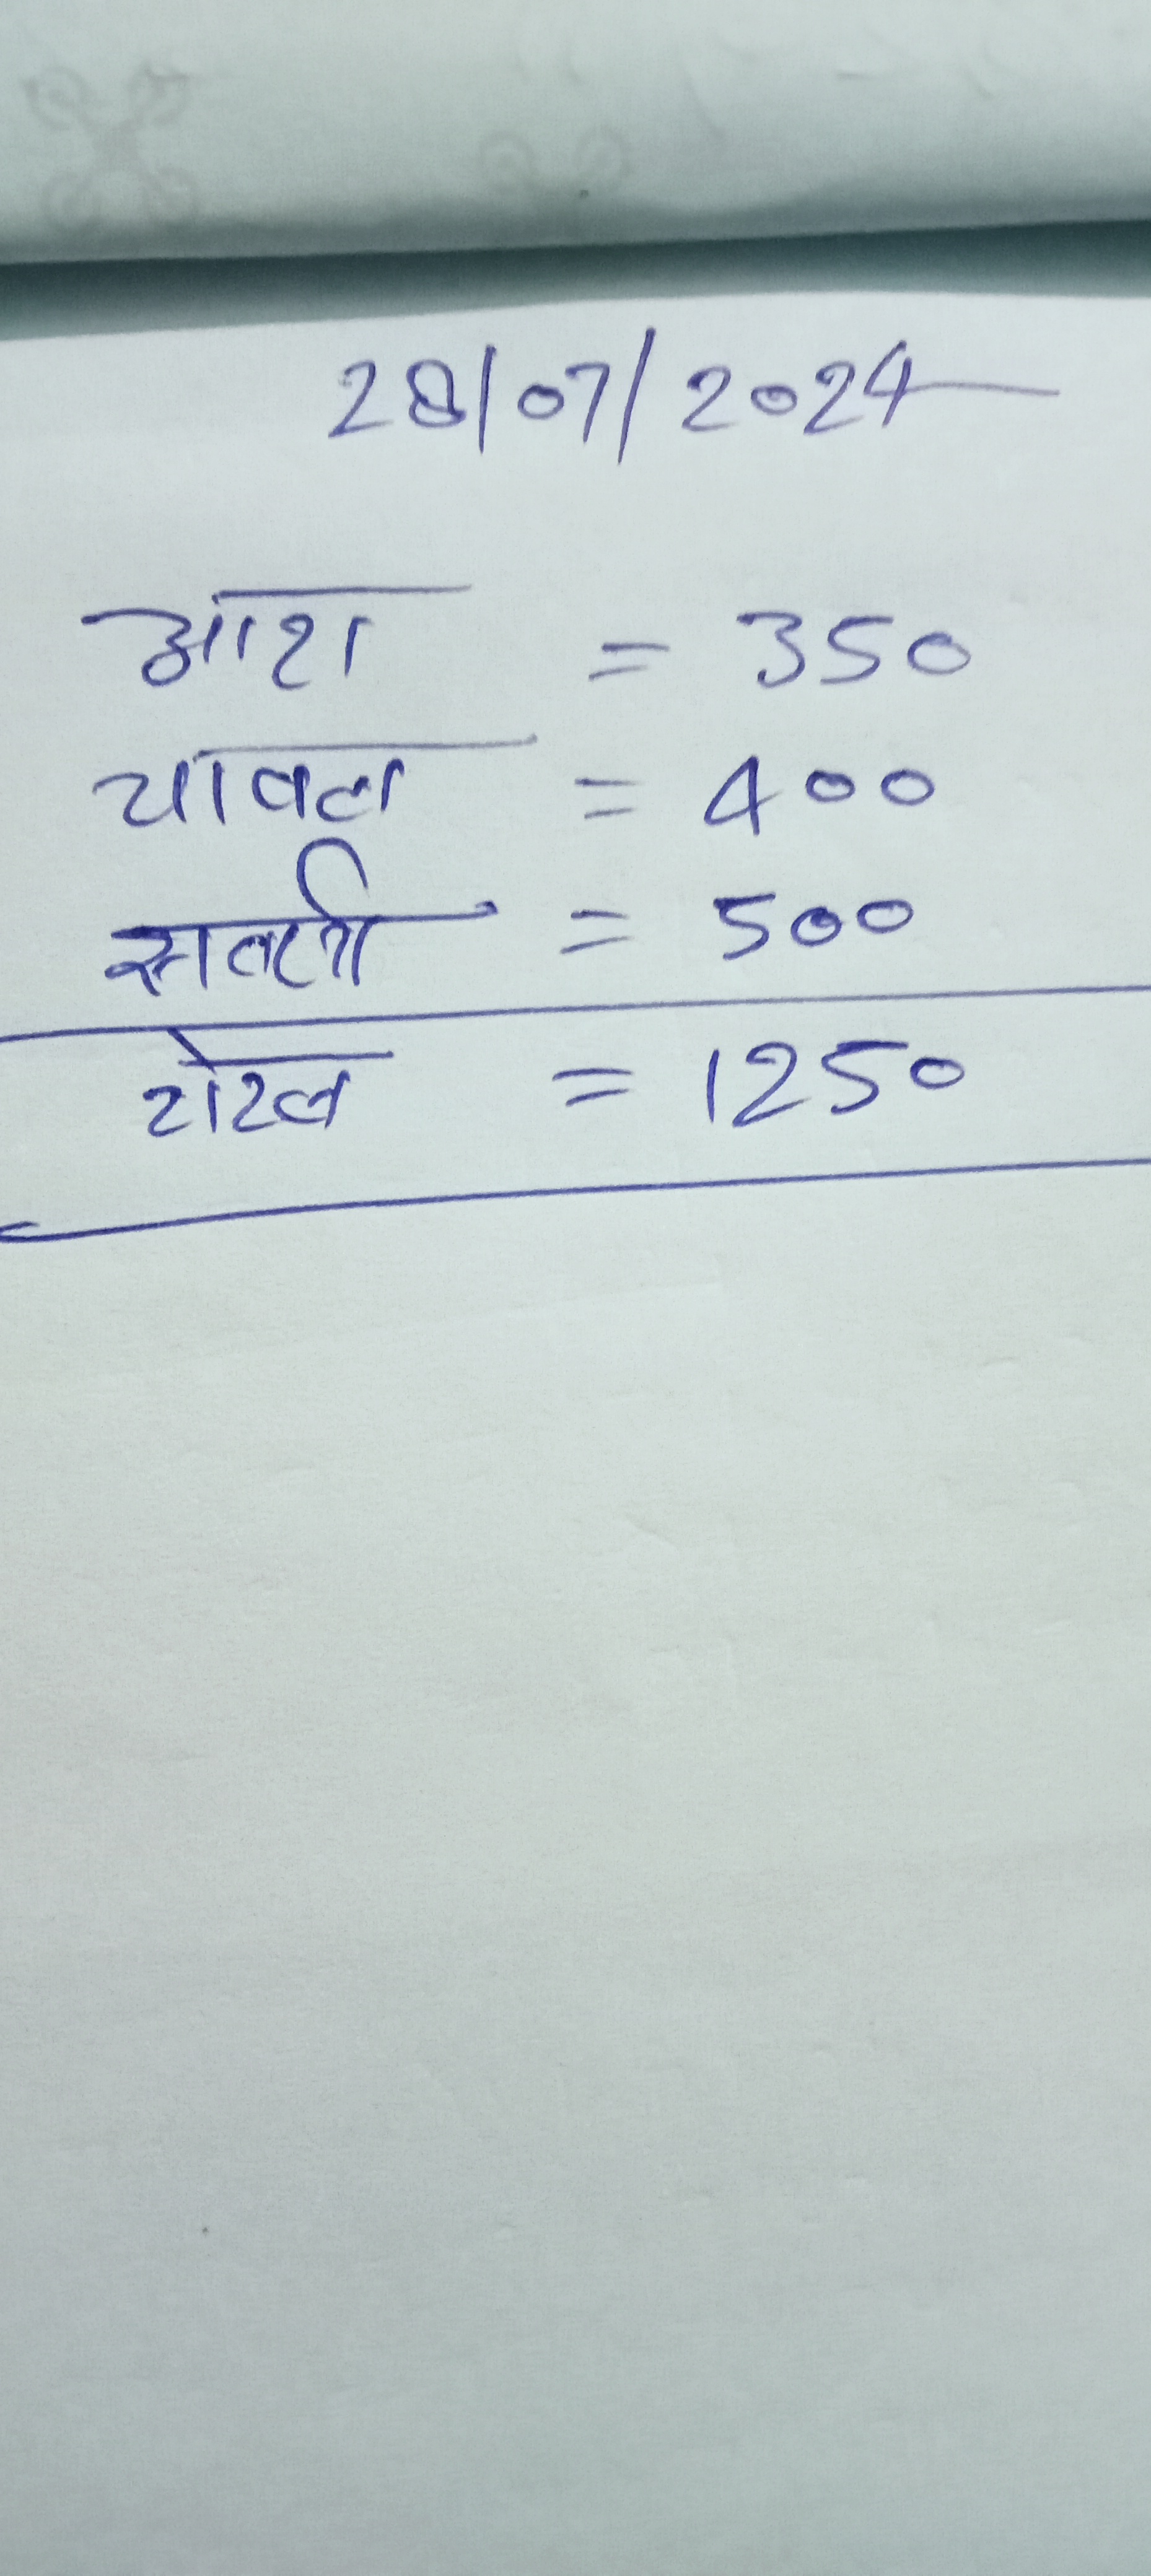 28/07/2024
आटा = 350
चावल = 400
= 500
टोटल = 1250